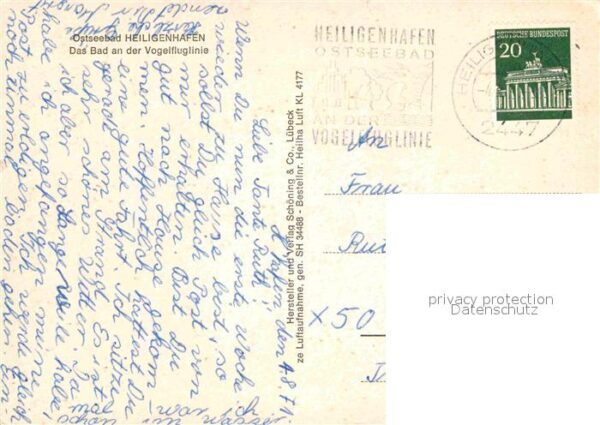 Ostseebad HEILIGENHAFEN
Das Bad an der Vogelfluglinie
HEILIGENHAFEN
OSTSEEBAD
AN DER
VOGELFLUGLINIE
DEUTSCHE BUNDESPOST
20
HEILIG
2447
Hersteller und Verlag Schöning & Co., Lübeck
ze Luftaufnahme, gen. SH 34488 - Bestellnr. Heilha Luft KL 4177
An
Frau
x 50
H'hafen den 4.8.71.
Liebe Tante Ruth!
Wenn Du nun die erste Woche
wieder zu Hause bist, so
sollst Du gleich Post von
mir erhalten. Bist Du
gut nach Hause gekom
men. Hoffentlich hattest Du
eine gute Fahrt. Ich sitze
gerade am Strand. Es ist
sehr schönes Wetter. Da
ich aber so Langeweile habe,
habe ich angefangen meine
Post zu erledigen. Ich werde gleich
noch einmal baden gehen. Ein-
mal war ich
schon im Wasser.
Herzliche Grüße
sendet Dir Margret
privacy protection
Datenschutz